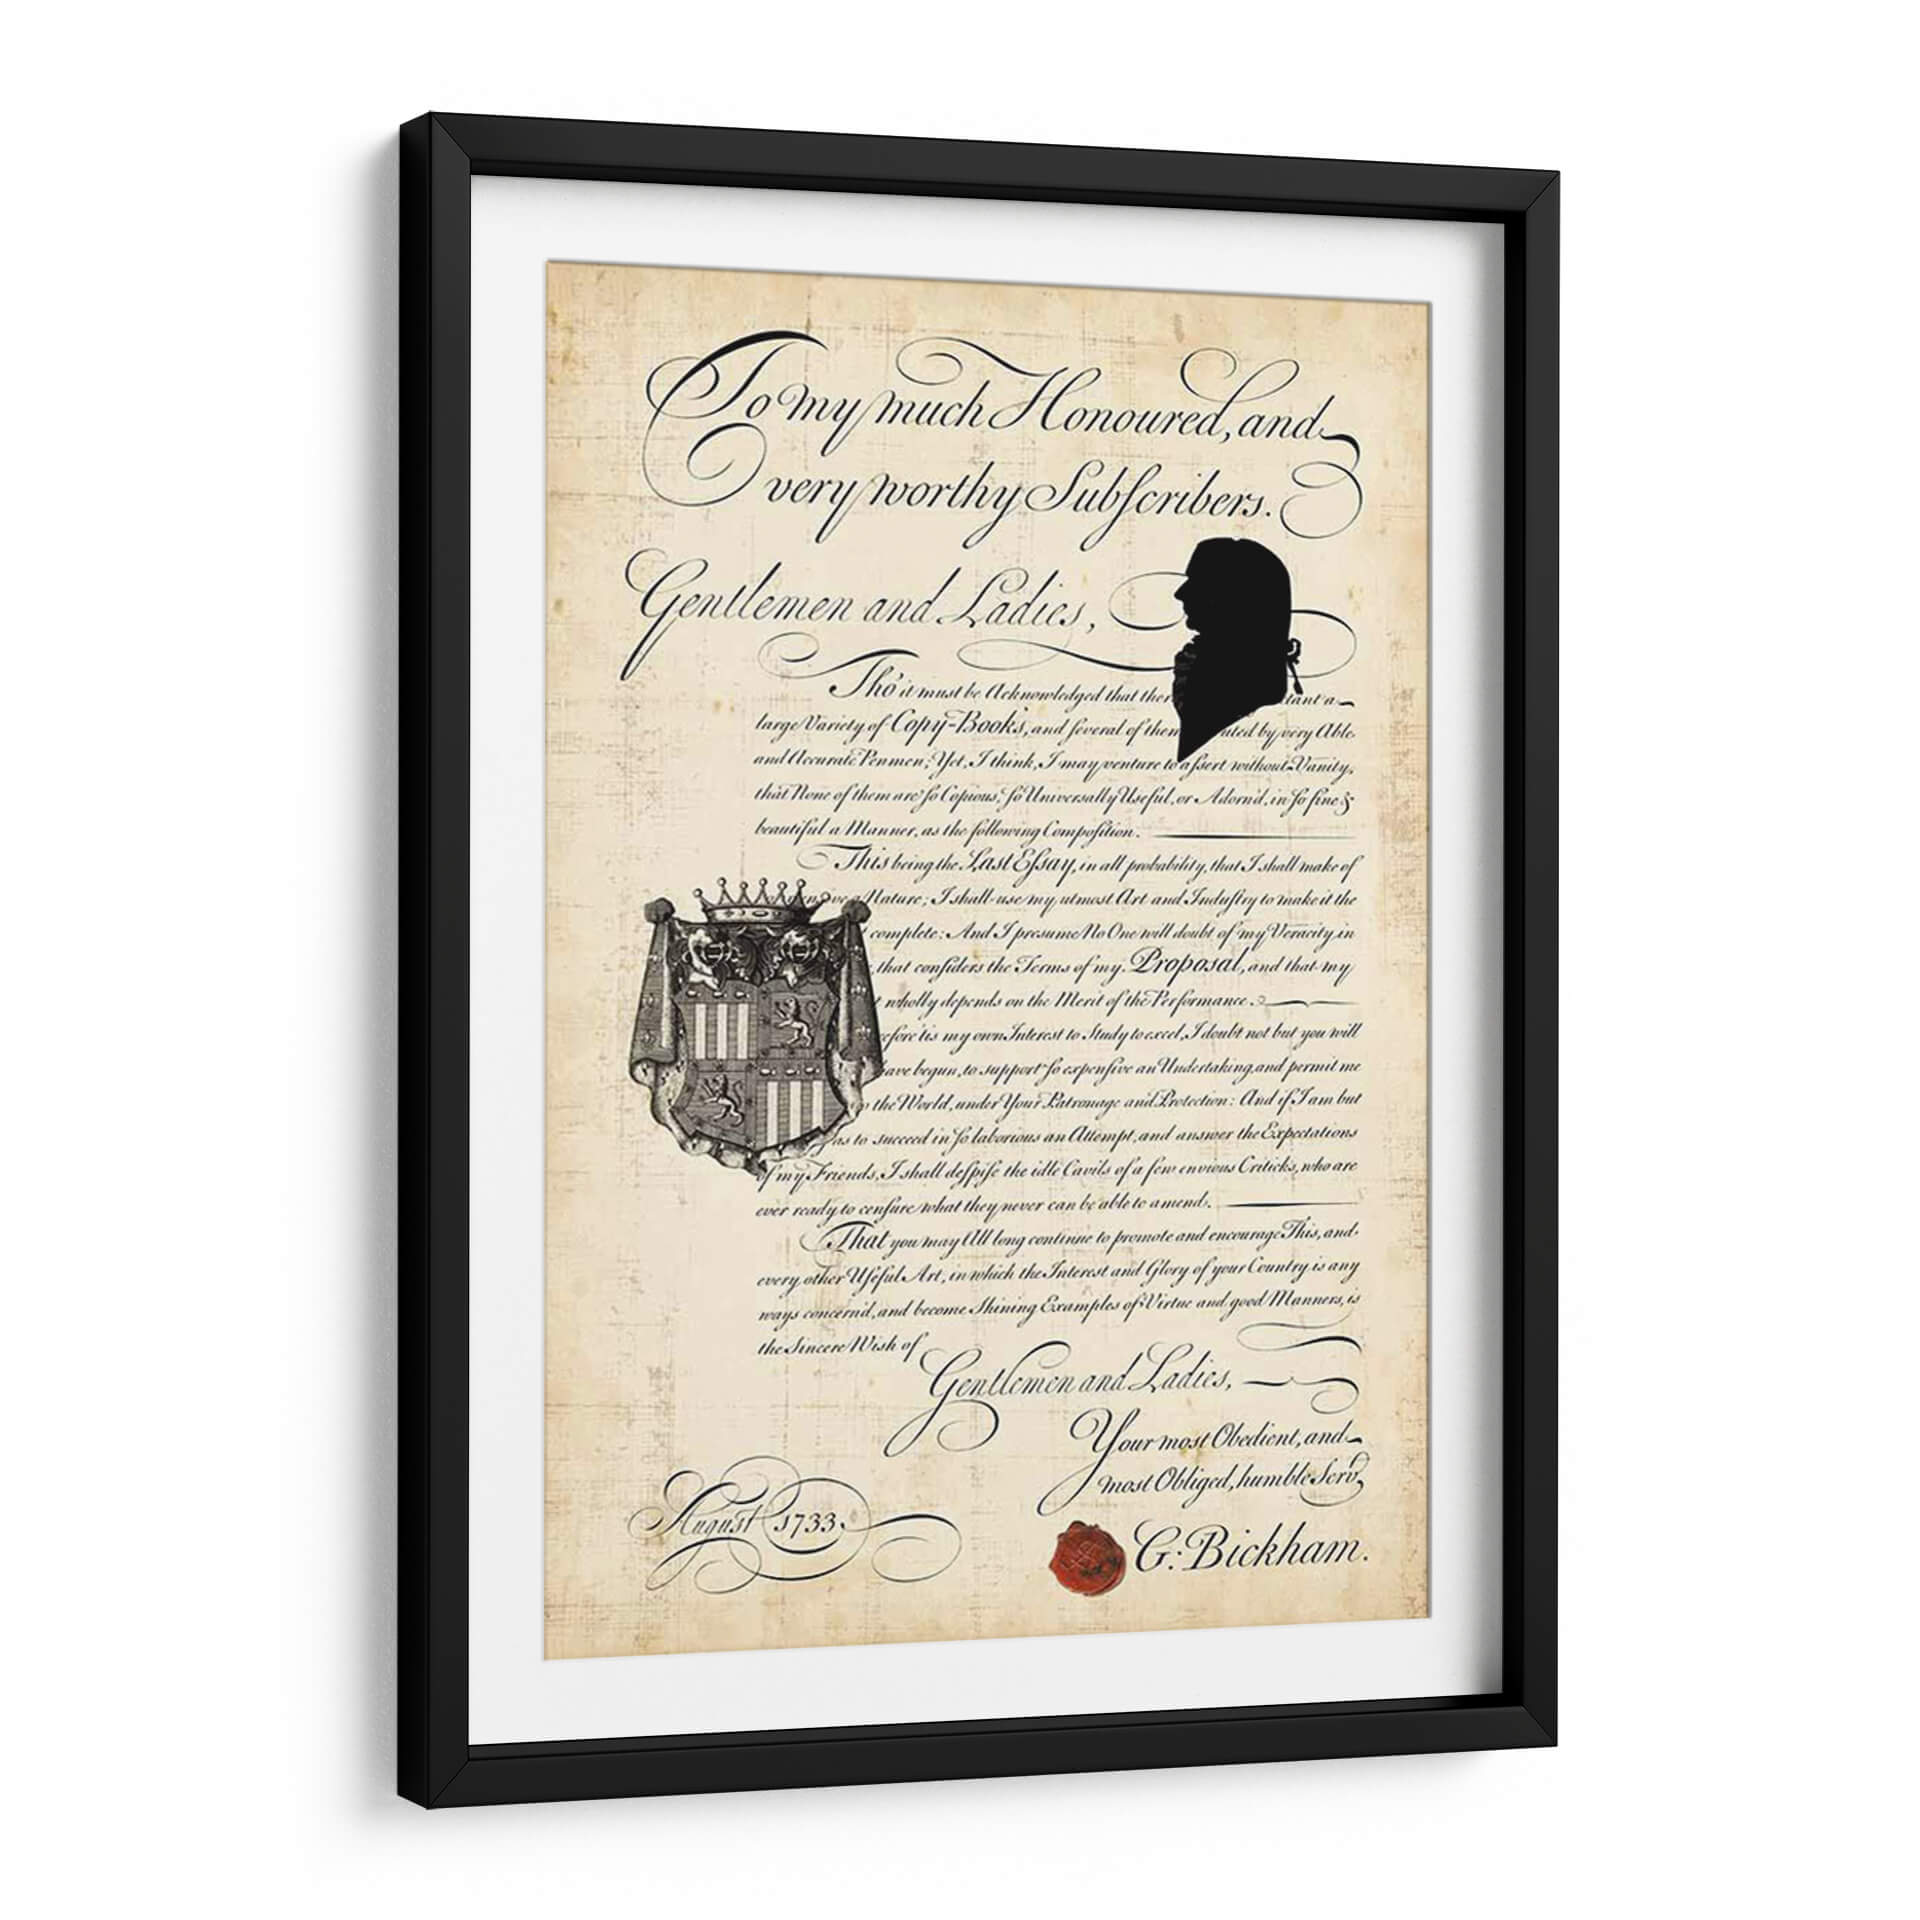 To my much Honoured, and
very worthy Subſcribers.
Gentlemen and Ladies,
Tho' it must be Acknowledged that ther tant a
large Variety of Copy-Books, and ſeveral of them uted by very Able
and Accurate Penmen; Yet, I think, I may venture to aſsert without Vanity,
that None of them are ſo Copious, ſo Universally Useful, or Adorn'd, in ſo fine &
beautiful a Manner, as the following Compoſition.
This being the Last Eſsay, in all probability, that I shall make of
Nature; I shall use my utmost Art and Induſtry to make it the
complete: And I presume No One will doubt of my Veracity in
that conſiders the Terms of my Proposal, and that my
wholly depends on the Merit of the Performance.
efore 'tis my own Interest to Study to excel, I doubt not but you will
ave begun, to support ſo expenſive an Undertaking, and permit me
the World, under Your Patronage and Protection: And if I am but
as to succeed in ſo laborious an Attempt, and answer the Expectations
of my Friends, I shall deſpiſe the idle Cavils of a few envious Criticks, who are
ever ready to cenſure what they never can be able to amend.
That you may All long continue to promote and encourage This, and
every other Uſeful Art, in which the Interest and Glory of your Country is any
ways concern'd, and become Shining Examples of Virtue and good Manners, is
the Sincere Wish of
Gentlemen and Ladies,
Your most Obedient, and
most Obliged, humble Serv,
August 1733. G: Bickham.